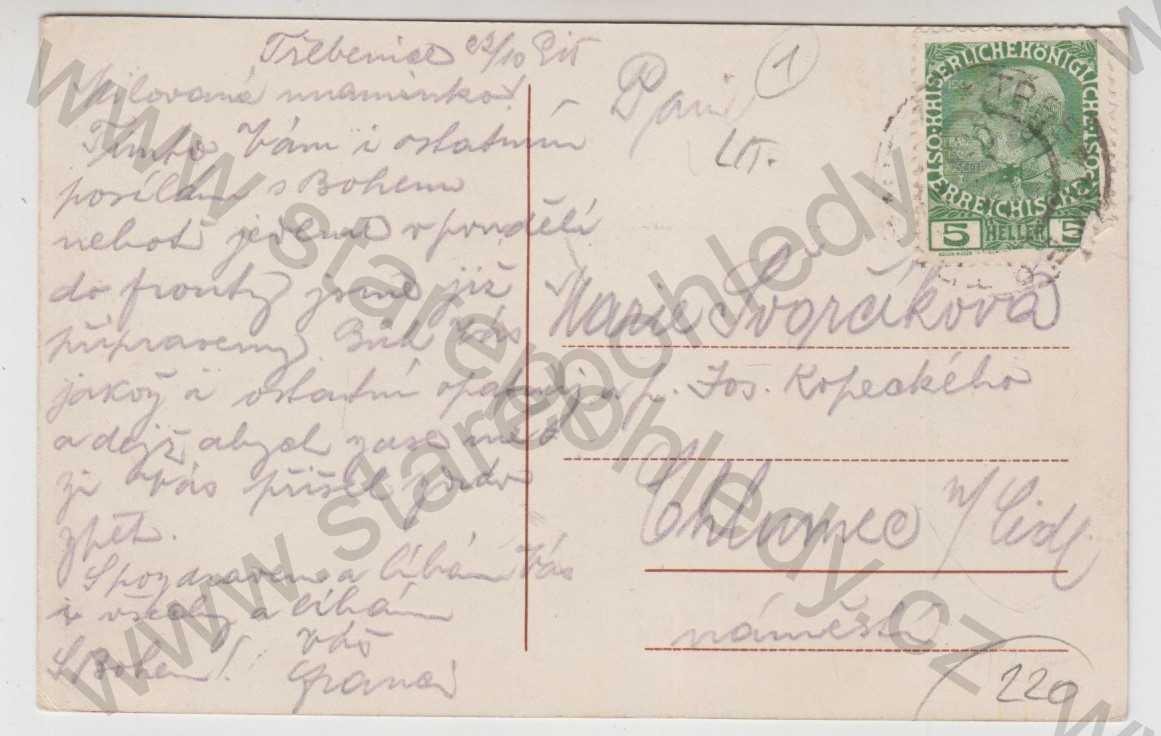 Třebenice 22/10 915
Milovaná maminko!
Tímto Vám i ostatním
posílám s Bohem
neboť jedeme v pondělí
do fronty jsme již
připraveny Bůh Vás
jakož i ostatní opatruj
a dejž abych zase
k Vás přišel zdráv
zpět.
S pozdravem a líbám Vás
všechny a líbám
Váš
S Bohem!
Paní
1
LIT.
Marie Svorčíková
u p. Jos. Kopeckého
Chlumec n/Cidl.
náměstí
220
KAISERLICHE KÖNIGLICHE ÖSTERREICHISCHE POST
5 HELLER 5
www.starepohledy.cz